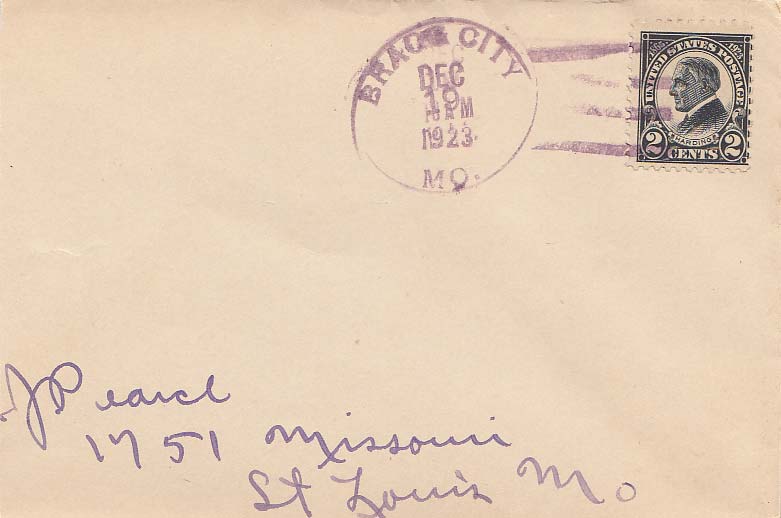 BRAGG CITY
DEC
19
AM
1923
MO.
UNITED STATES POSTAGE
1865 1923
HARDING
2 CENTS 2
J Pearcl
1751 Missouri
St Louis Mo